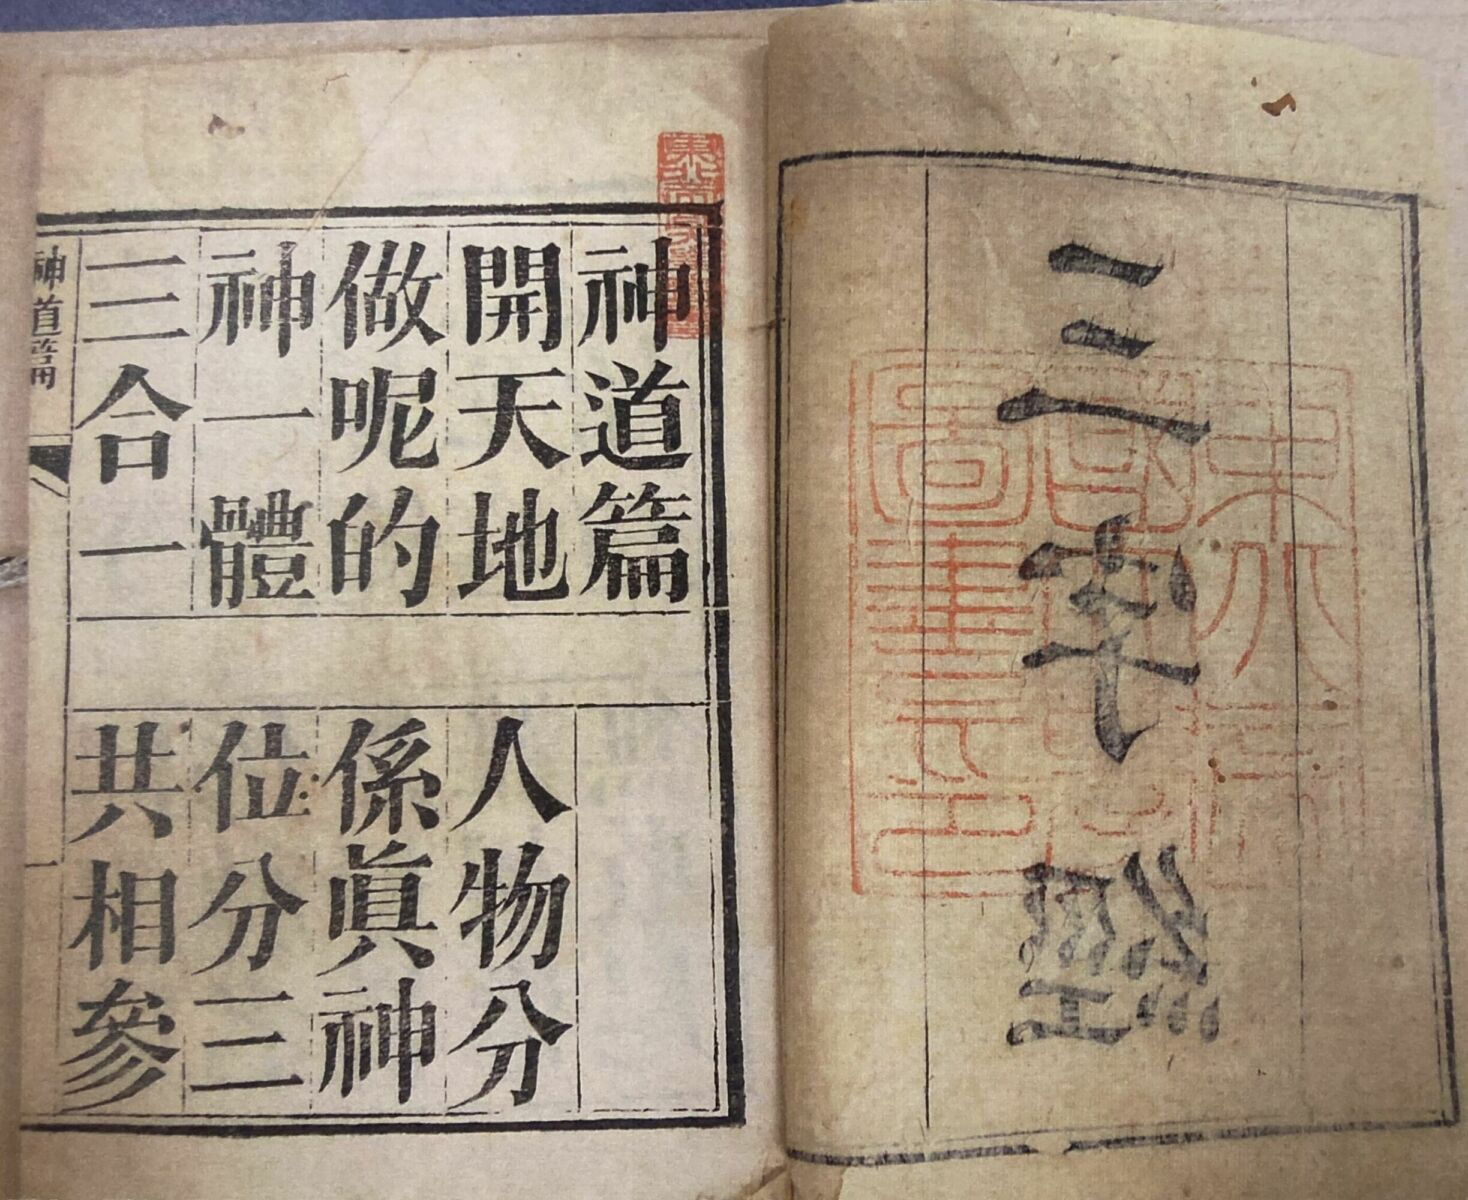 三字經
神道篇
開天地 人物分
做呢的 係眞神
神一體 位分三
三合一 共相參
神道篇 一